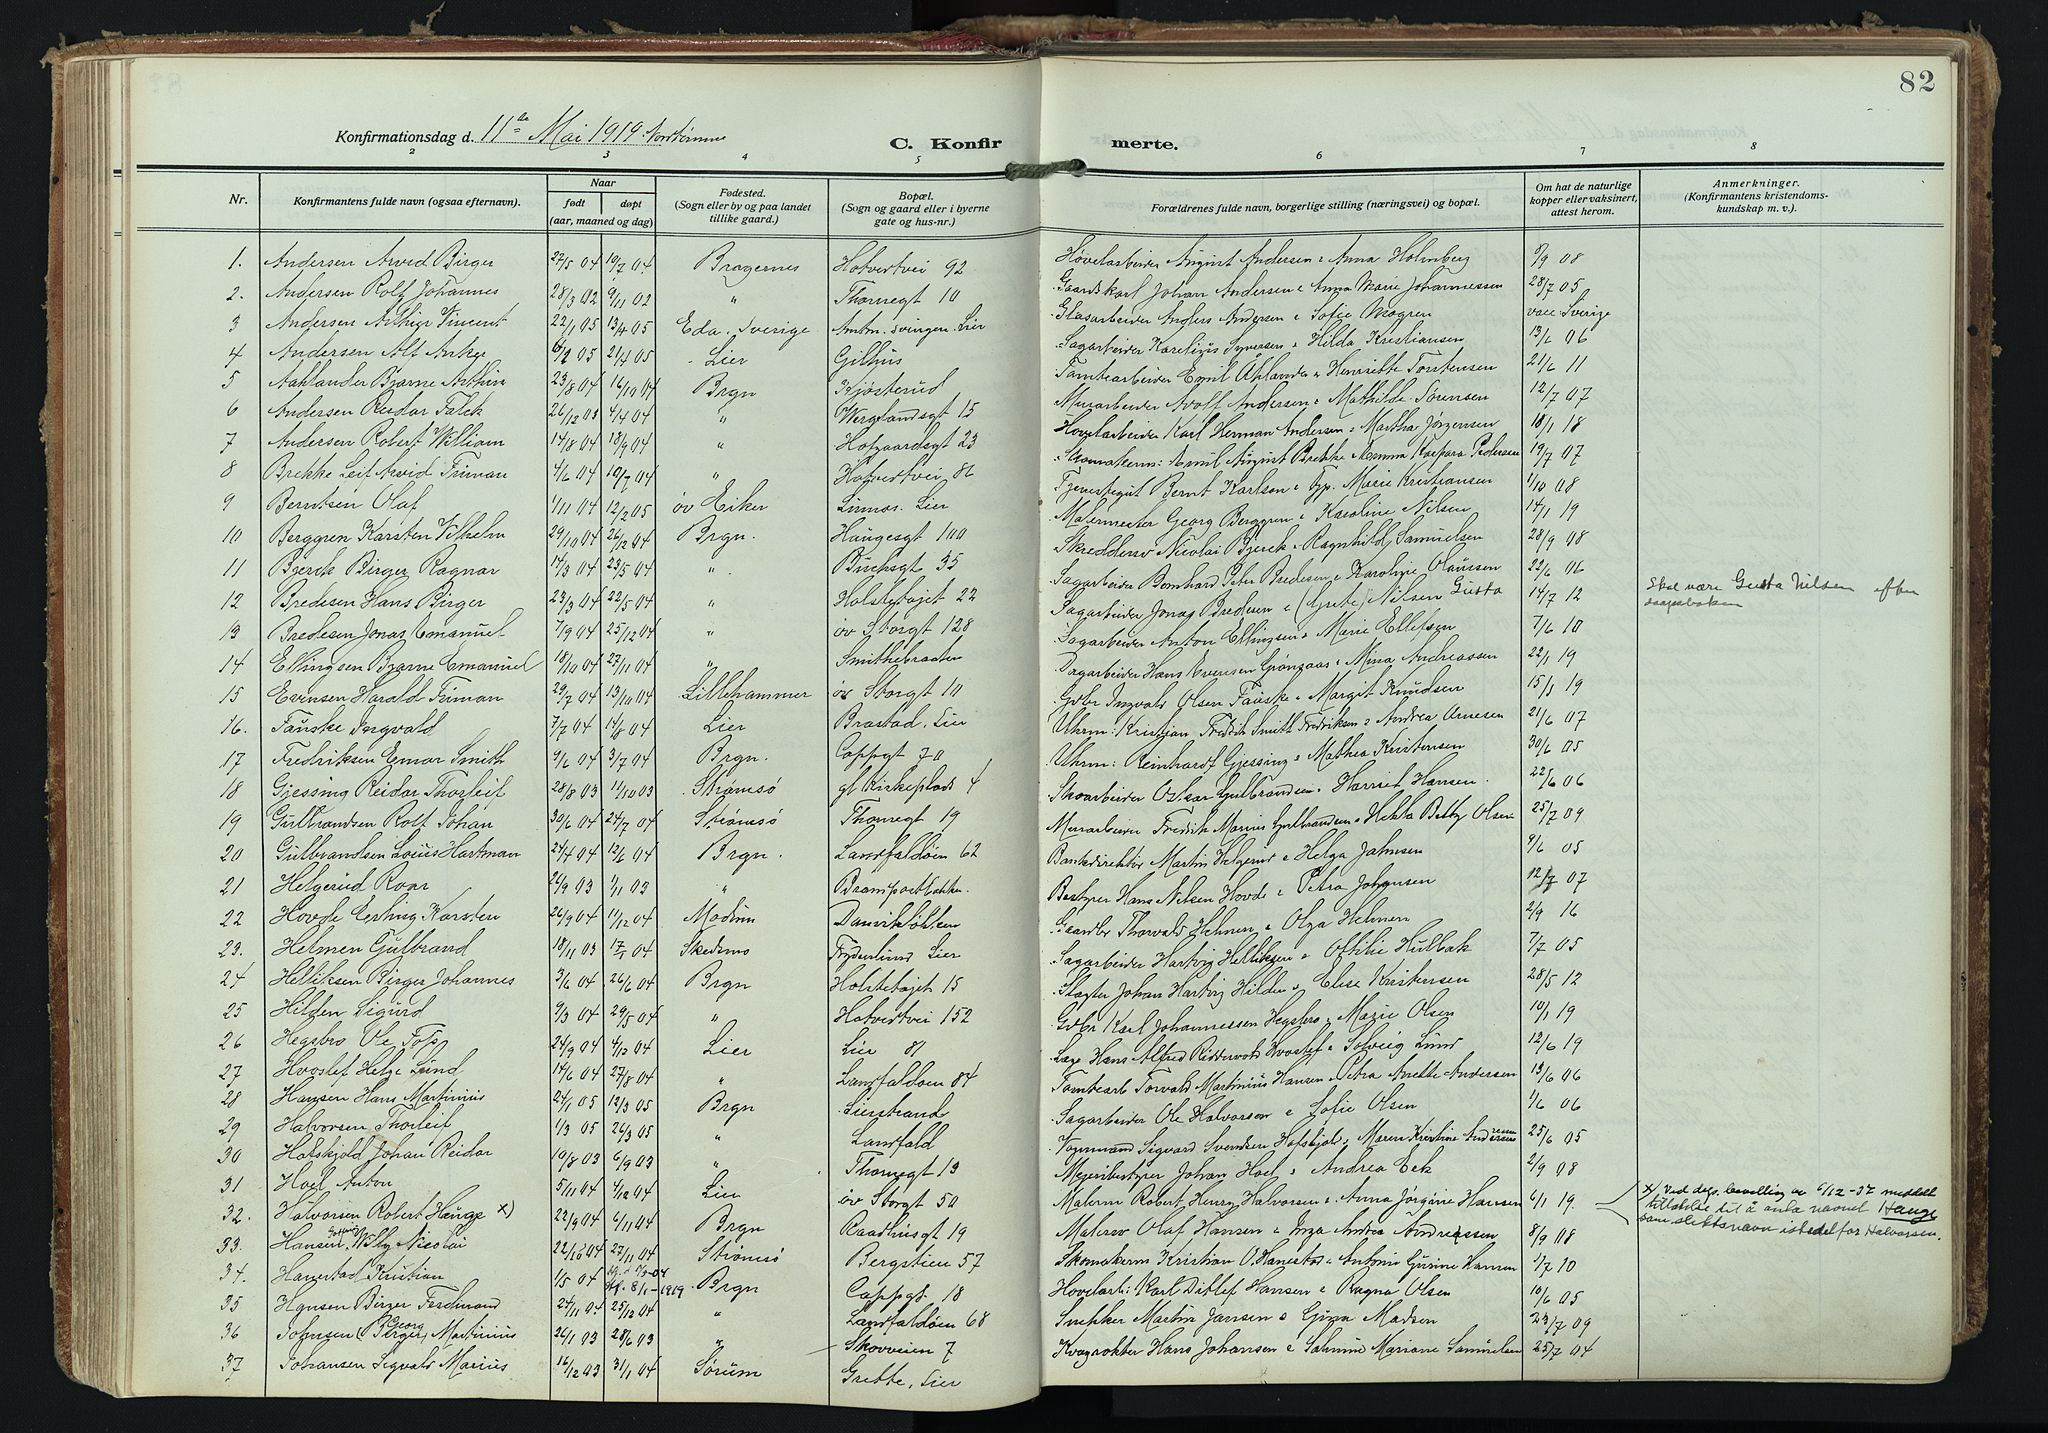 82
Konfirmationsdag d. 11te Mai 1919
C. Konfirmerte.
2 3 4 5 6 7 8
Nr.
Konfirmantens fulde navn (ogsaa efternavn).
Naar
født
døpt
(aar, maaned og dag)
Fødested.
(Sogn eller by og paa landet
tillike gaard.)
Bopæl.
(Sogn og gaard eller i byerne
gate og hus-nr.)
Forældrenes fulde navn, borgerlige stilling (næringsvei) og bopæl.
Om hat de naturlige
kopper eller vaksinert,
attest herom.
Anmerkninger.
(Konfirmantens kristendoms-
kundskap m. v.).
1. Andersen Arvid Birger 27/5 04 10/7 04 Bragernes Hotvertvei 92 Høvelarbeider August Andersen & Anna Holmberg 8/9 08
2. Andersen Rolf Johannes 28/3 02 9/11 02 " Thornegt 10 Gaardskarl Johan Andersen & Anna Marie Johannessen 28/7 05
3 Andersen Arthur Vincent 22/1 05 13/4 05 Eda. Sverige Amtm. svingen. Lier Glasarbeider Anders Andersen & Sofie Mogren vacc Sverige
4 Andersen Alf 6/2 05 21/4 05 Lier Gilhus Sagarbeider Karelius Syversen & Hilda Kristiansen 13/6 06
5 Aahlander Bjarne Arthur 23/8 04 16/10 04 Brgn Kjøsterud Tomtearbeider Emil Åhlander & Henriette Torstensen 21/6 11
6 Andersen Reidar Falck 26/12 03 4/4 04 " Wergelandsgt 15 Murarbeider Adolf Andersen & Mathilde Sørensen 12/7 07
7 Andersen Robert William 14/8 04 18/9 04 " Hofgaardsgt 23 Høvelarbeider Karl Herman Andersen & Martha Jørgensen 18/1 18
8 Brekke Leif Arvid Friman 4/6 04 10/7 04 " Hotvertvei 86 Skomakerm: Emil August Brekke & Emma Kaspara Pedersen 19/7 07
9 Berntsen Olaf 1/11 04 12/2 05 øv Eiker Linnes. Lier Tjenestegut Bernt Karlsen & Tjp. Marie Kristiansen 1/10 08
10 Berggren Karsten Vilhelm 29/10 04 26/12 04 Brgn. Haugesgt 100 Malermester Georg Berggren & Karoline Nilsen 14/1 19
11 Bjerck Birger Ragnar 14/3 04 23/5 04 " Buchsgt 35 Skreddersv Nicolai Bjerck & Ragnhild Samuelsen 28/9 08
12 Bredesen Hans Birger 23/3 04 22/5 04 " Holsteløjet 22 Sagarbeider Bernhard Peter Bredesen & Karoline Olaussen 22/6 06
13 Bredesen Jonas Emanuel 7/9 04 25/12 04 " øv Storgt 128 Sagarbeider Jonas Bredesen & (Grete) Nilsen Gusta 14/7 12
Skal være Gusta Nilsen efter
daapsboken
14 Ellingsen Bjarne Emanuel 18/10 04 27/11 04 " Smithebraaten Sagarbeider Anton Ellingsen & Marie Ellefsen 7/6 10
15 Evensen Harald Friman 29/7 04 13/10 04 Lillehammer øv Storgt 10 Dagarbeider Hans Evensen & Mina Andreassen 22/1 19
16. Fauske Ingvald 7/7 04 14/8 04 Lier Brastad. Lier Gbr Ingvald Olsen Fauske & Margit Knudsen 15/1 19
17 Fredriksen Einar Smith 9/6 04 3/7 04 Brgn. Cappgt 70 Uhrm: Kristian Fredrik Smith Fredriksen & Andrea Arnesen 21/6 07
18 Gjessing Reidar Thorleif 28/8 03 11/10 03 Strømsø gl Kirkeplads 4 Uhrm: Reinhardt Gjessing & Mathea Kristensen 30/6 05
19 Gulbrandsen Rolf Johan 30/6 04 24/7 04 Strømsø Thornegt 19 Skoarbeider Oskar Gulbrandsen & Harriet Hansen. 22/6 06
20 Gulbrandsen Louis Hartman 24/4 04 12/6 04 Brgn. Landfaldøen 62 Murarbeider Fredrik Marius Gulbrandsen & Hekla Betty Olsen 25/7 09
21 Helgerud Roar 24/9 03 1/11 03 " Bankdirektør Martin Helgerud & Helga Jahnsen 9/6 05
22 Hovde Erling Karsten 26/9 04 11/12 04 Modum Bestyrer Hans Nilsen Hovde & Petra Johansen 12/7 07
23. Helmen Gulbrand 18/11 03 04 Skedsmo Frydenlund Lier Gaardbr Thorvald Helmen & Olga Helmen 2/9 16
24 Helliksen Birger Johannes 3/6 04 26/6 04 Brgn Holsteløjet 15 Sagarbeider Hartvig Helliksen & Ottilie Hulbak 7/7 05
25 Hilden Sigurd 9/3 04 29/5 04 " Hotvertvei 152 Slagter Johan Hartvig Hilden & Elise Kristensen 28/5 12
26 Hegsbro Ole 24/9 04 4/12 04 Lier Lier 81 Gbr Karl Johannessen Hegsbro & Marie Olsen 10/1 19
27 Hvoslef Helge Lund 14/6 04 27/8 04 " Landfaldøen 84 Læge Hans Alfred Ridderwold Hvoslef & Solveig Lund 12/6 19
28 Hansen Hans Martinius 24/1 05 12/3 05 Brgn Lierstrand Tomtearb Torvald Martinius Hansen & Petra Anette Andersen 13/6 06
29 Halvorsen Thorleif 1/3 05 26/3 05 " Landfald Sagarbeider Ole Halvorsen & Sofie Olsen 1/6 06
30 Hafskjold Johan Reidar 10/8 03 6/9 03 " Thornegt 13 Vognmand Sigvard Svendsen Hafskjold & Maren Kristine Andersen 25/6 05
31 Hoel Anton 5/11 04 4/12 04 Lier øv Storgt 50 Meieribestyrer Johan Hoel & Andrea Eek 2/9 08
32. Halvorsen Robert Hauge x) 22/9 04 6/11 04 Brgn Raadhusgt 19 Malerm Robert Henry Halvorsen & Anna Jørgine Hansen 6/1 19.
x) Ved dep. bevilling av 6/12-37 meddelt
tillatelse til å anta navnet Hauge
som slektsnavn istedetfor Halvorsen.
33. Hansen Willy Nicolai 22/10 04 27/11 04 Strømsø Bergstien 57 Malersv Olaf Hansen & Inga Andrea Andreassen 8/9 08
34. Hanestad Kristian 1/5 04 8/1-1919 Brgn Cappgt. 18 Skomakerm Kristian O. Hanestad & Antonie Gurine Hansen 1/7 10
35 Hansen Birger Ferdinand 24/11 04 25/12 04 " Landfaldøen 68 Hovelarb: Karl Ditlef Hansen & Ragna Olsen 10/6 05
36 Johnsen (Birger) Georg Martinius 26/1 03 28/6 03 " Skovveien 7 Snekker Martin Jansen & Gina Madsen 23/7 09
37 Johansen Sigvald Marius 16/12 03 31/1 04 Sørum Grette. Lier Kvægrøkter Hans Johansen & Marianne Samuelsen 25/7 04